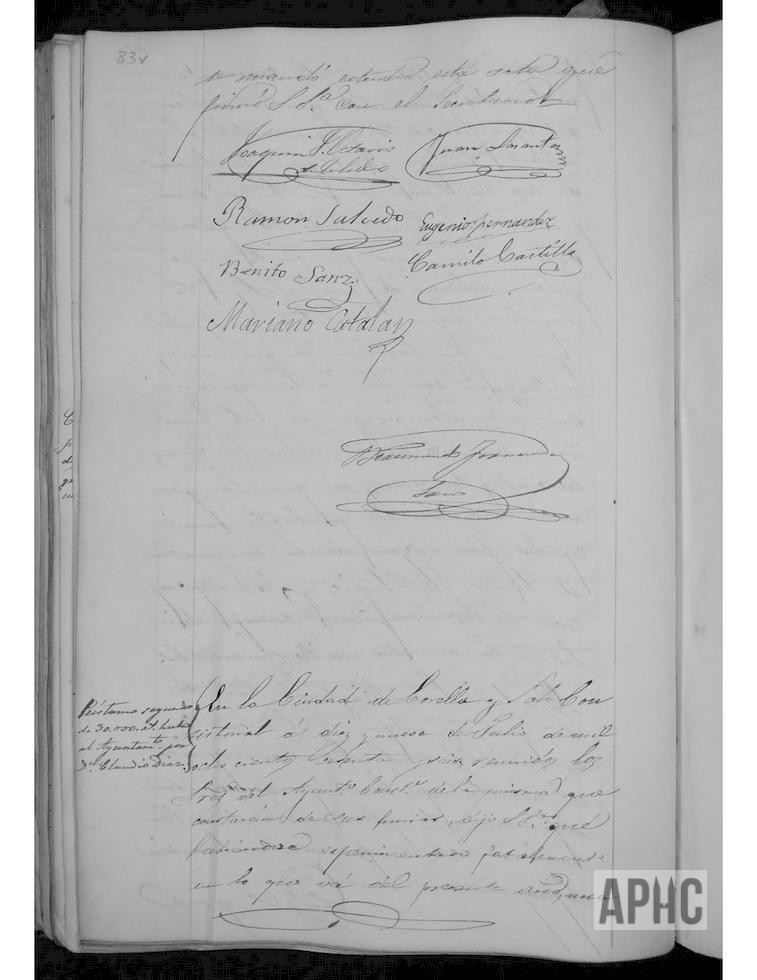 83v
se mandó estender esta acta que
firmó S Sª. con el Secretario
Joaquin Octavio
de Toledo
Juan
Ramon Salcedo
Eugenio Fernandez
Benito Sanz
Camilo Castilla
Mariano Catalan
Fernandez
Préstamo segundo
de 30.000 hecho
al Ayuntamto. por
Dn. Claudio Diaz.
En la Ciudad de Corella y Sala Con
sistorial á diez y nueve de Julio de mil
ocho cientos setenta y seis reunidos los
Sres. del Ayunto. Const.l de la misma que
constarán de sus firmas, dijo S Sª. que
habiendose esperimentado fatalmente
en lo que vá del presente año, una
APHC